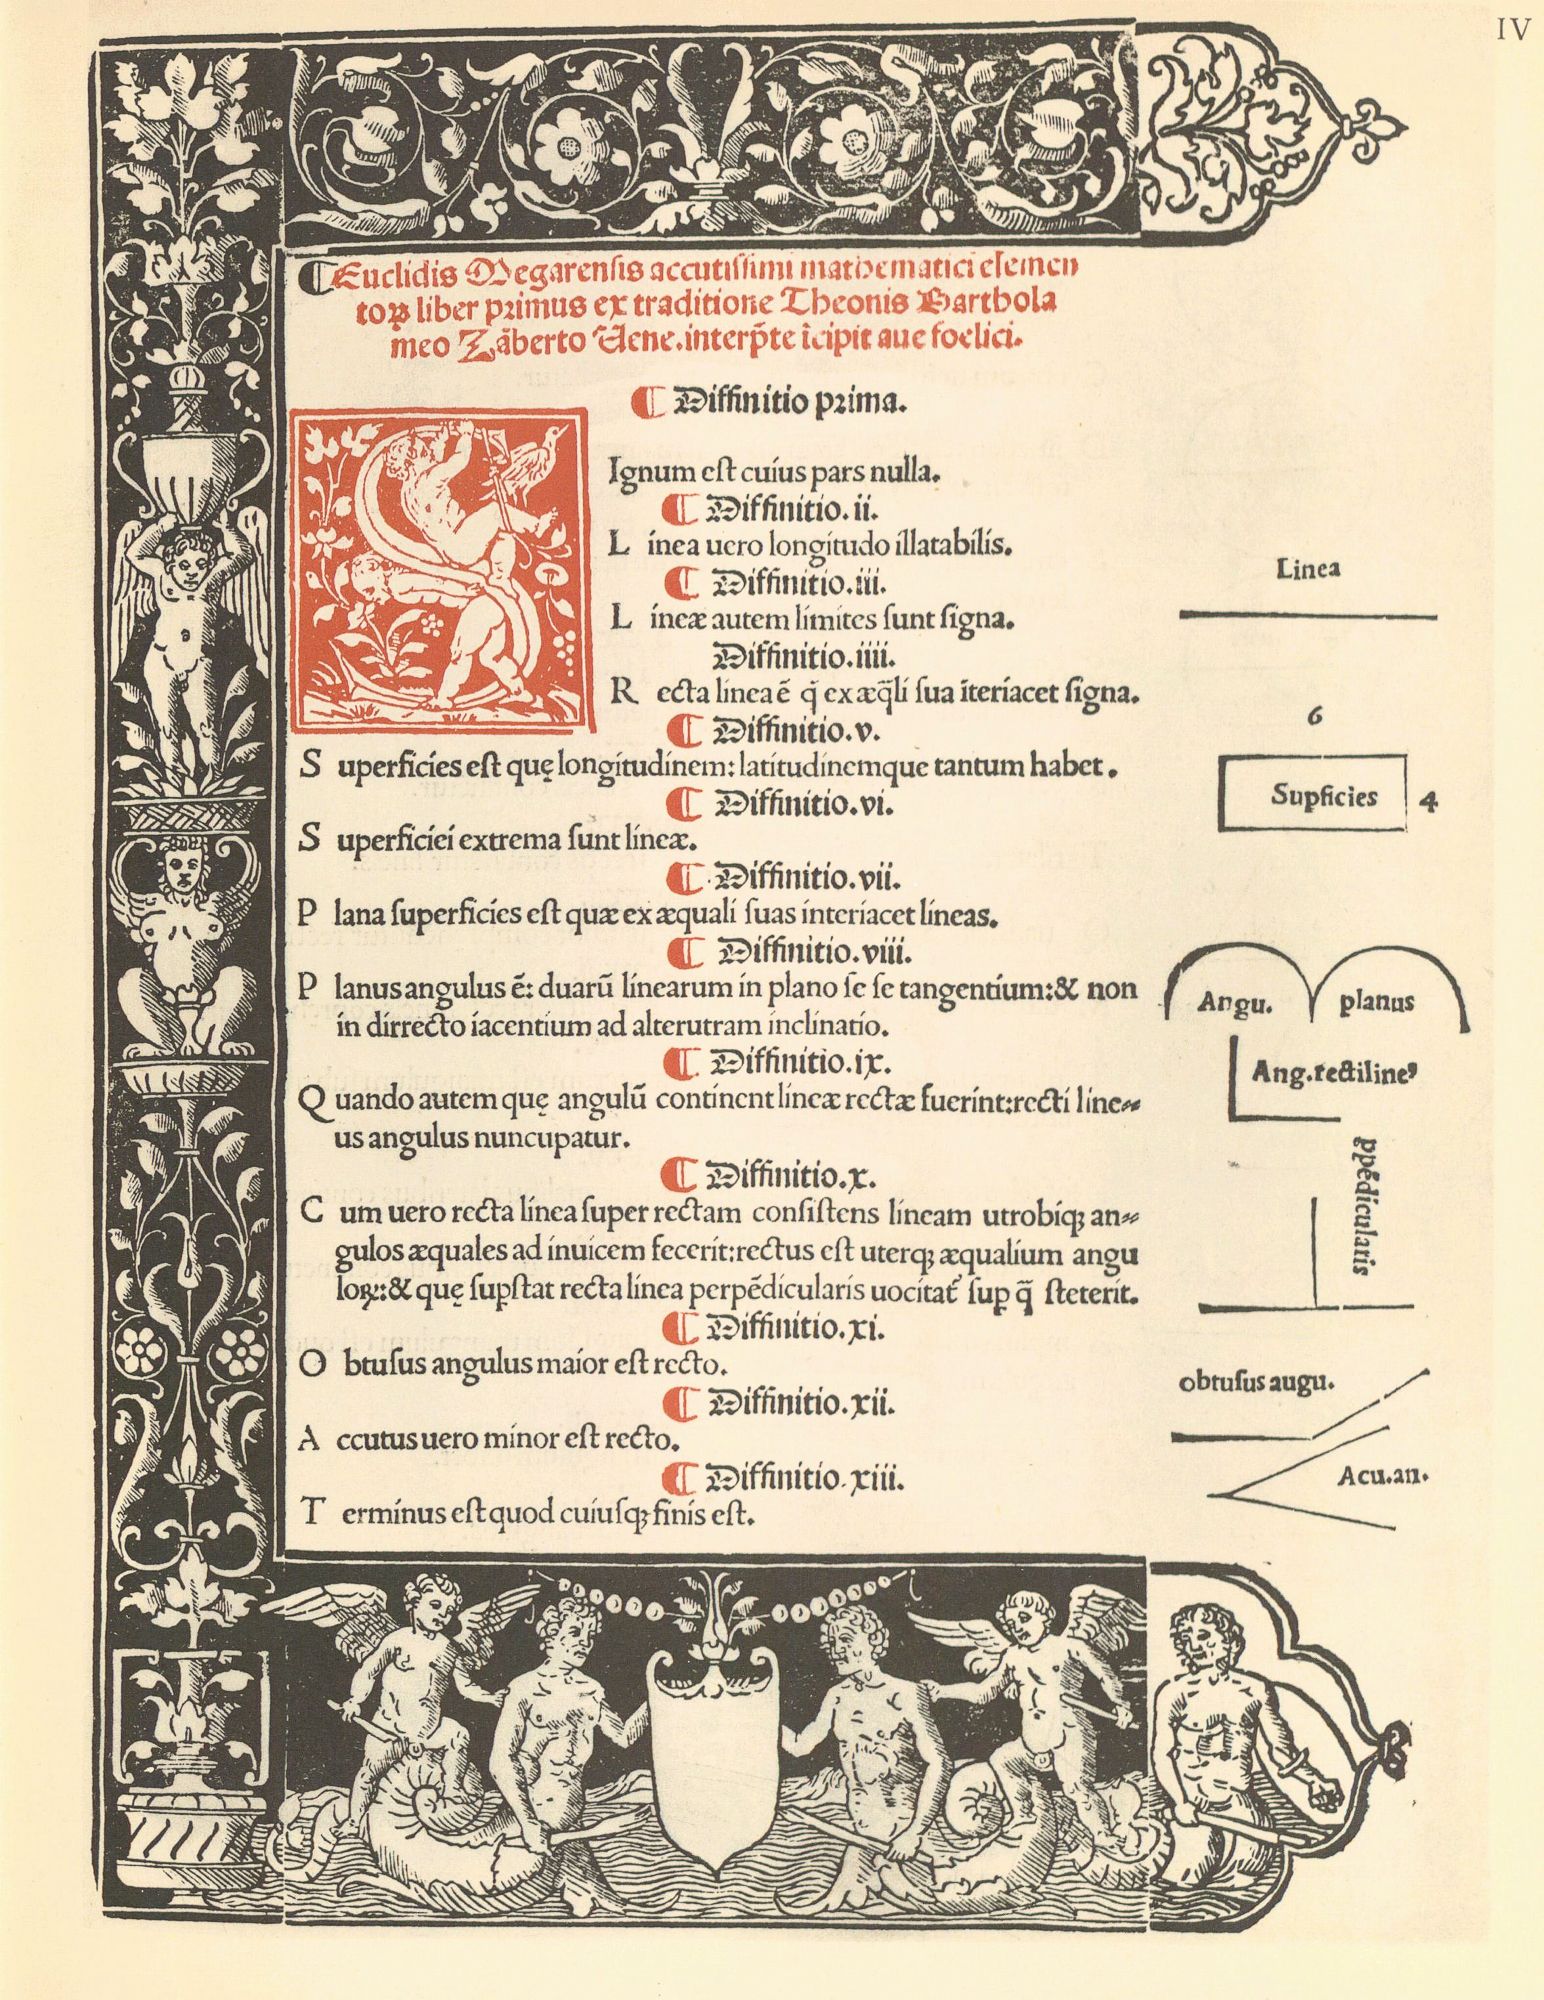 IV
¶Euclidis Megarensis accutissimi mathematici elemen
toꝝ liber primus ex traditione Theonis Barthola
meo Zāberto Vene.interp̄te īcipit aue foelici.
¶ Diffinitio prima.
SIgnum eſt cuius pars nulla.
¶ Diffinitio.ii.
L inea uero longitudo illatabilis.
¶ Diffinitio.iii.
L ineæ autem limites ſunt ſigna.
Diffinitio.iiii.
R ecta linea ē q̄ ex æq̄li ſua īteriacet ſigna.
¶ Diffinitio.v.
S uperficies eſt quę longitudinem: latitudinemque tantum habet.
¶ Diffinitio.vi.
S uperficiei extrema ſunt lineæ.
¶ Diffinitio.vii.
P lana ſuperficies eſt quæ ex æquali ſuas interiacet lineas.
¶ Diffinitio.viii.
P lanus angulus ē: duarū linearum in plano ſe ſe tangentium:& non
in dirrecto iacentium ad alterutram inclinatio.
¶ Diffinitio.ix.
Q uando autem quę angulū continent lineæ rectæ fuerint:recti line⸗
us angulus nuncupatur.
¶ Diffinitio.x.
C um uero recta linea ſuper rectam conſiſtens lineam utrobiqꝫ an⸗
gulos æquales ad inuicem fecerit:rectus eſt uterqꝫ æqualium angu
loꝝ:& quę ſupſtat recta linea perpēdicularis uocitat᷑ ſuꝑ q̄ ſteterit.
¶ Diffinitio.xi.
O btuſus angulus maior eſt recto.
¶ Diffinitio.xii.
A ccutus uero minor eſt recto.
¶ Diffinitio.xiii.
T erminus eſt quod cuiuſqꝫ finis eſt.
Linea
6
Supficies 4
Angu. planus
Ang.rectilineꝰ
ppēdicularis
obtuſus augu.
Acu.an.